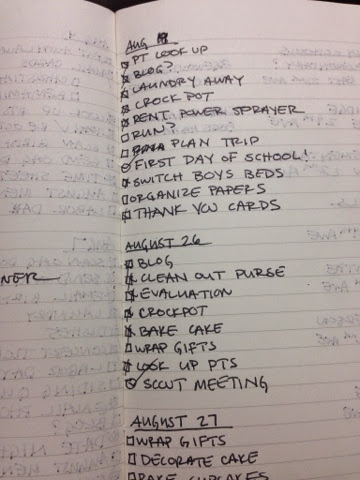 AUG
PT LOOK UP
BLOG?
LAUNDRY AWAY
CROCK POT
RENT POWER SPRAYER
RUN?
PLAN TRIP
FIRST DAY OF SCHOOL!
SWITCH BOYS BEDS
ORGANIZE PAPERS
THANK YOU CARDS
AUGUST 26
BLOG
CLEAN OUT PURSE
EVALUATION
CROCKPOT
BAKE CAKE
WRAP GIFTS
LOOK UP PTS
SCOUT MEETING
AUGUST 27
WRAP GIFTS
DECORATE CAKE
BAKE CUPCAKES